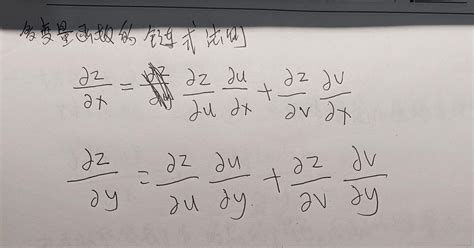 多变量函数的链式法则
∂z/∂x = ∂z/∂u ∂u/∂x + ∂z/∂v ∂v/∂x
∂z/∂y = ∂z/∂u ∂u/∂y + ∂z/∂v ∂v/∂y